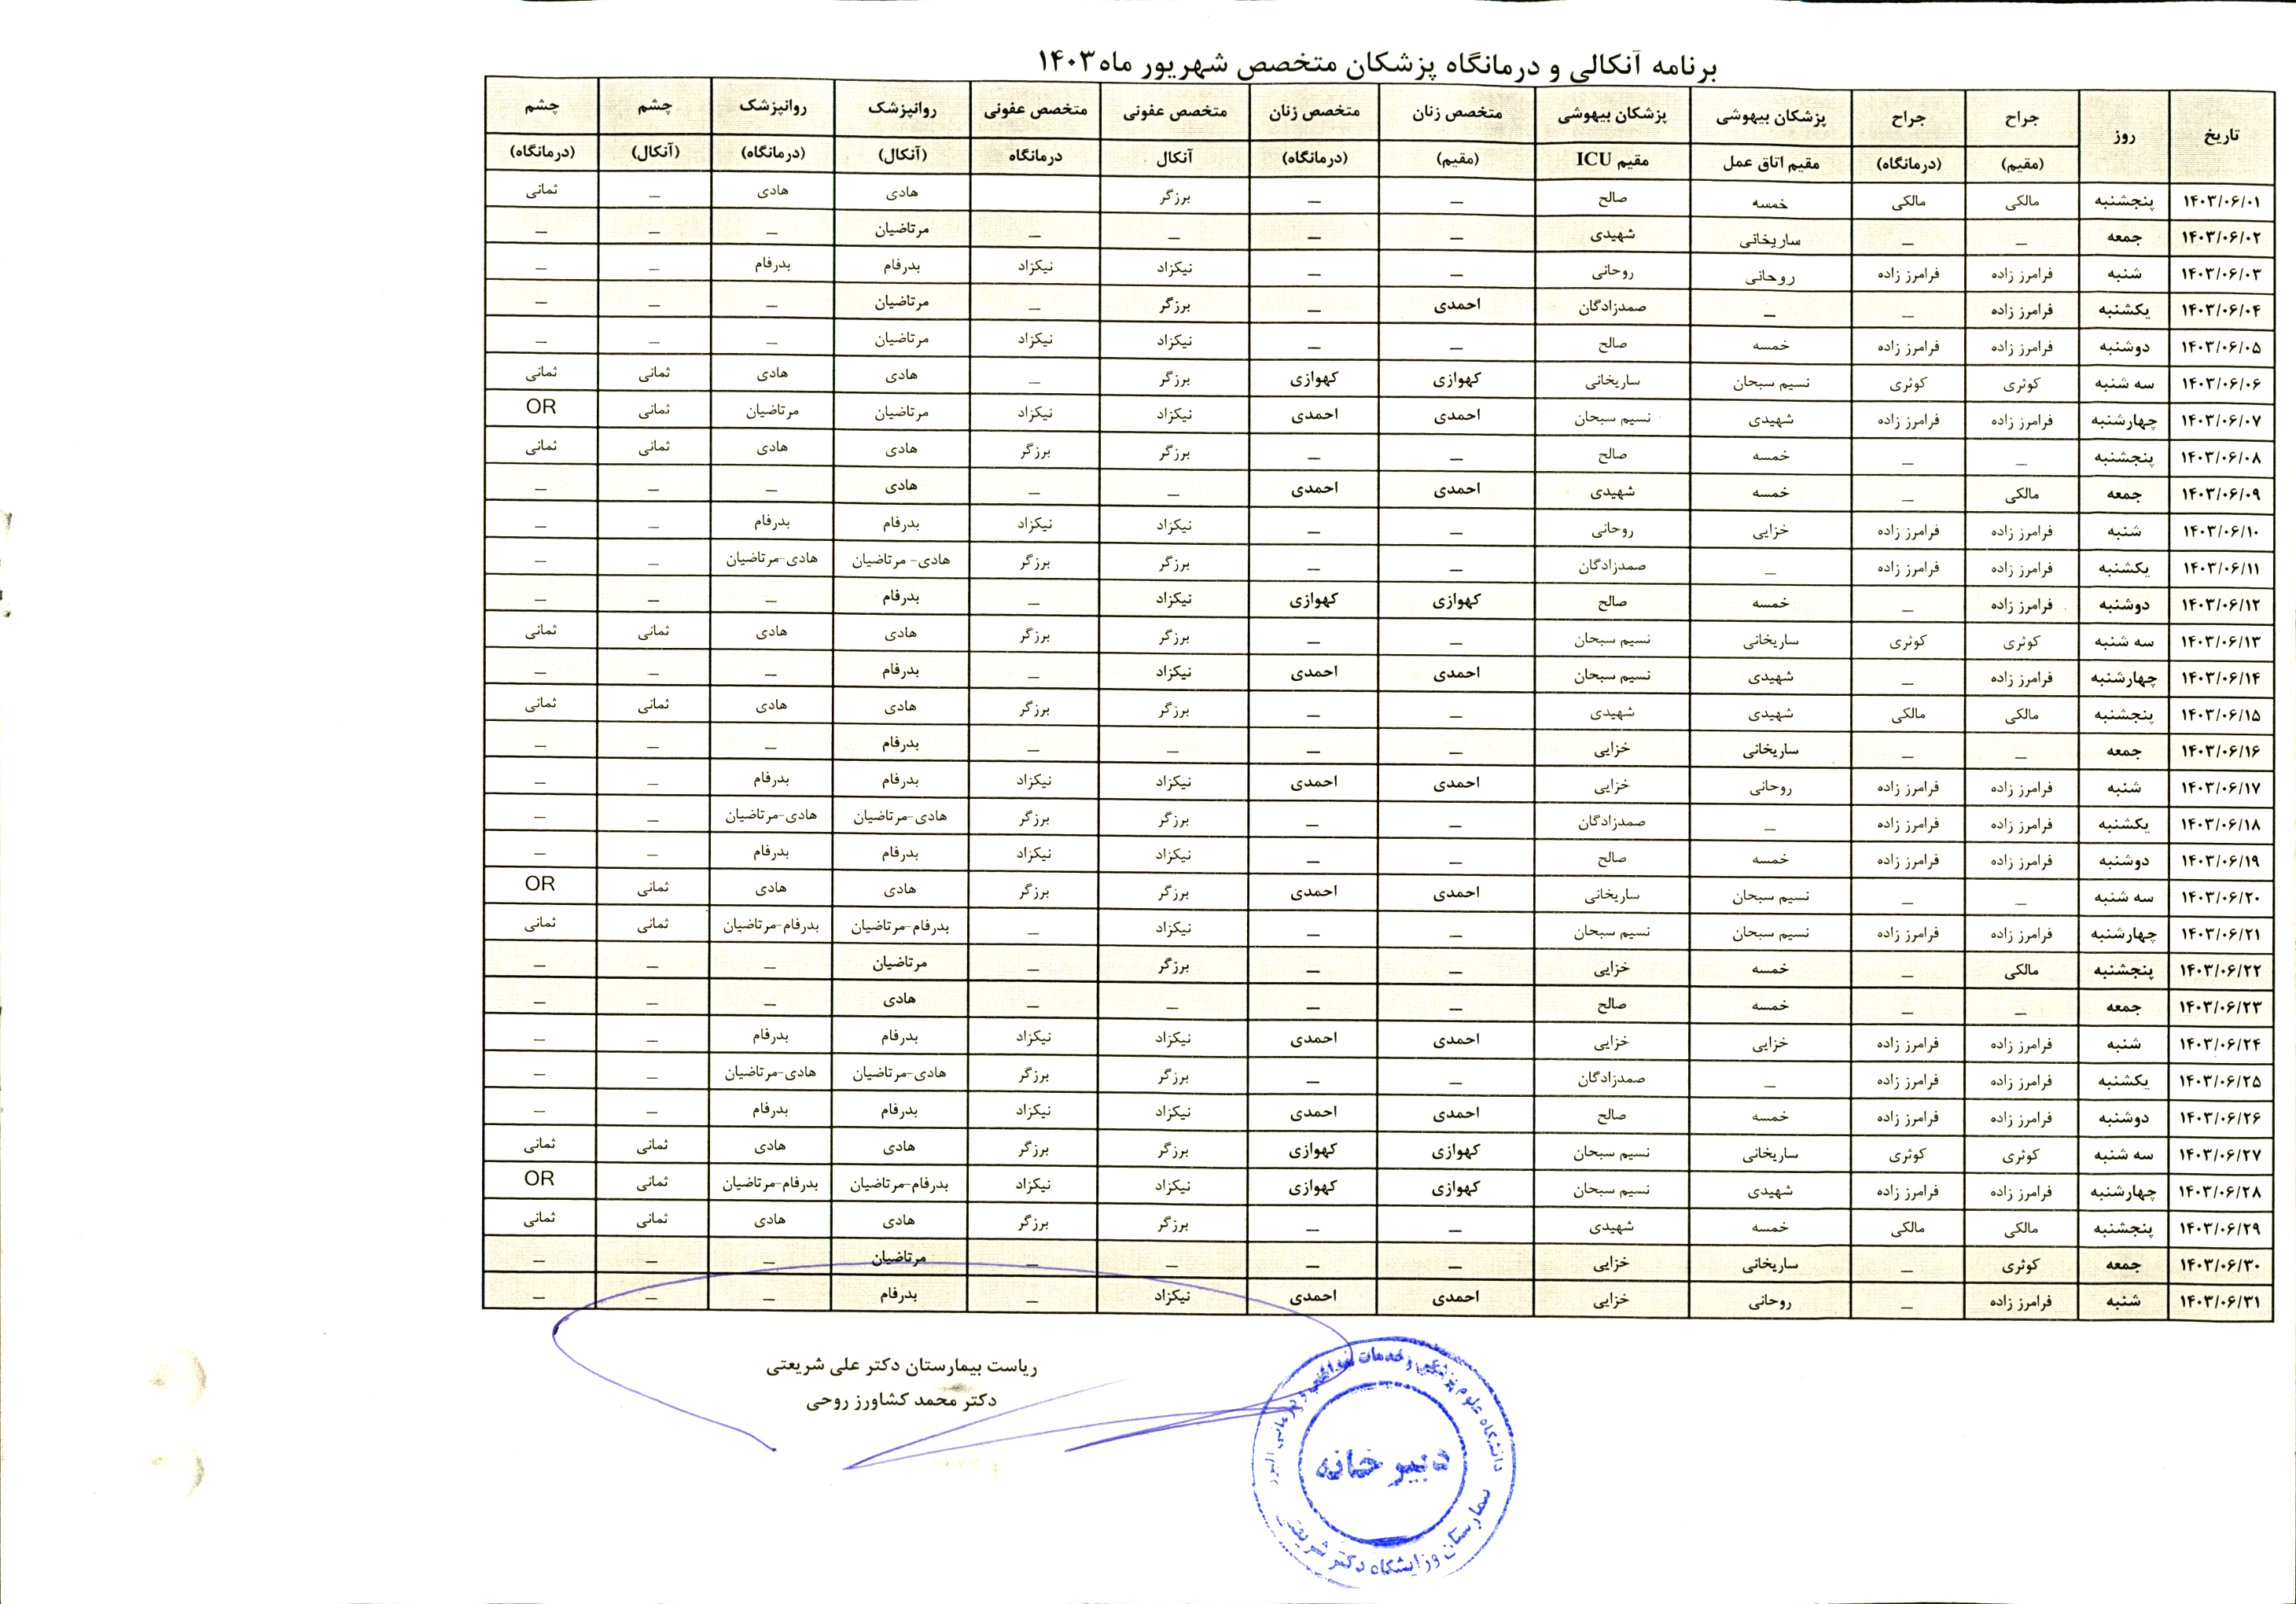 برنامه آنکالی و درمانگاه پزشکان متخصص شهریور ماه ۱۴۰۳
تاریخ روز جراح جراح پزشکان بیهوشی پزشکان بیهوشی متخصص زنان متخصص زنان متخصص عفونی متخصص عفونی روانپزشک روانپزشک چشم چشم
(مقیم) (درمانگاه) مقیم اتاق عمل مقیم ICU (مقیم) (درمانگاه) آنکال درمانگاه (آنکال) (درمانگاه) (آنکال) (درمانگاه)
۱۴۰۳/۰۶/۰۱ پنجشنبه مالکی مالکی خمسه صالح _ _ برزگر هادی هادی _ ثمانی
۱۴۰۳/۰۶/۰۲ جمعه _ _ ساریخانی شهیدی _ _ _ _ مرتاضیان _ _ _
۱۴۰۳/۰۶/۰۳ شنبه فرامرز زاده فرامرز زاده روحانی روحانی _ _ نیکزاد نیکزاد بدرفام بدرفام _ _
۱۴۰۳/۰۶/۰۴ یکشنبه فرامرز زاده _ _ صمدزادگان احمدی _ برزگر _ مرتاضیان _ _ _
۱۴۰۳/۰۶/۰۵ دوشنبه فرامرز زاده فرامرز زاده خمسه صالح _ _ نیکزاد نیکزاد مرتاضیان _ _ _
۱۴۰۳/۰۶/۰۶ سه شنبه کوثری کوثری نسیم سبحان ساریخانی کهوازی کهوازی برزگر _ هادی هادی ثمانی ثمانی
۱۴۰۳/۰۶/۰۷ چهارشنبه فرامرز زاده فرامرز زاده شهیدی نسیم سبحان احمدی احمدی نیکزاد نیکزاد مرتاضیان مرتاضیان ثمانی OR
۱۴۰۳/۰۶/۰۸ پنجشنبه _ _ خمسه صالح _ _ برزگر برزگر هادی هادی ثمانی ثمانی
۱۴۰۳/۰۶/۰۹ جمعه مالکی _ خمسه شهیدی احمدی احمدی _ _ هادی _ _ _
۱۴۰۳/۰۶/۱۰ شنبه فرامرز زاده فرامرز زاده خزایی روحانی _ _ نیکزاد نیکزاد بدرفام بدرفام _ _
۱۴۰۳/۰۶/۱۱ یکشنبه فرامرز زاده فرامرز زاده _ صمدزادگان _ _ برزگر برزگر هادی- مرتاضیان هادی-مرتاضیان _ _
۱۴۰۳/۰۶/۱۲ دوشنبه فرامرز زاده _ خمسه صالح کهوازی کهوازی نیکزاد _ بدرفام _ _ _
۱۴۰۳/۰۶/۱۳ سه شنبه کوثری کوثری ساریخانی نسیم سبحان _ _ برزگر برزگر هادی هادی ثمانی ثمانی
۱۴۰۳/۰۶/۱۴ چهارشنبه فرامرز زاده _ شهیدی نسیم سبحان احمدی احمدی نیکزاد _ بدرفام _ _ _
۱۴۰۳/۰۶/۱۵ پنجشنبه مالکی مالکی شهیدی شهیدی _ _ برزگر برزگر هادی هادی ثمانی ثمانی
۱۴۰۳/۰۶/۱۶ جمعه _ _ ساریخانی خزایی _ _ _ _ بدرفام _ _ _
۱۴۰۳/۰۶/۱۷ شنبه فرامرز زاده فرامرز زاده روحانی خزایی احمدی احمدی نیکزاد نیکزاد بدرفام بدرفام _ _
۱۴۰۳/۰۶/۱۸ یکشنبه فرامرز زاده فرامرز زاده _ صمدزادگان _ _ برزگر برزگر هادی-مرتاضیان هادی-مرتاضیان _ _
۱۴۰۳/۰۶/۱۹ دوشنبه فرامرز زاده فرامرز زاده خمسه صالح _ _ نیکزاد نیکزاد بدرفام بدرفام _ _
۱۴۰۳/۰۶/۲۰ سه شنبه _ _ نسیم سبحان ساریخانی احمدی احمدی برزگر برزگر هادی هادی ثمانی OR
۱۴۰۳/۰۶/۲۱ چهارشنبه فرامرز زاده فرامرز زاده نسیم سبحان نسیم سبحان _ _ نیکزاد _ بدرفام-مرتاضیان بدرفام-مرتاضیان ثمانی ثمانی
۱۴۰۳/۰۶/۲۲ پنجشنبه مالکی _ خمسه خزایی _ _ برزگر _ مرتاضیان _ _ _
۱۴۰۳/۰۶/۲۳ جمعه _ _ خمسه صالح _ _ _ _ هادی _ _ _
۱۴۰۳/۰۶/۲۴ شنبه فرامرز زاده فرامرز زاده خزایی خزایی احمدی احمدی نیکزاد نیکزاد بدرفام بدرفام _ _
۱۴۰۳/۰۶/۲۵ یکشنبه فرامرز زاده فرامرز زاده _ صمدزادگان _ _ برزگر برزگر هادی-مرتاضیان هادی-مرتاضیان _ _
۱۴۰۳/۰۶/۲۶ دوشنبه فرامرز زاده فرامرز زاده خمسه صالح احمدی احمدی نیکزاد نیکزاد بدرفام بدرفام _ _
۱۴۰۳/۰۶/۲۷ سه شنبه کوثری کوثری ساریخانی نسیم سبحان کهوازی کهوازی برزگر برزگر هادی هادی ثمانی ثمانی
۱۴۰۳/۰۶/۲۸ چهارشنبه فرامرز زاده فرامرز زاده شهیدی نسیم سبحان کهوازی کهوازی نیکزاد نیکزاد بدرفام-مرتاضیان بدرفام-مرتاضیان ثمانی OR
۱۴۰۳/۰۶/۲۹ پنجشنبه مالکی مالکی خمسه شهیدی _ _ برزگر برزگر هادی هادی ثمانی ثمانی
۱۴۰۳/۰۶/۳۰ جمعه کوثری _ ساریخانی خزایی _ _ _ _ مرتاضیان _ _ _
۱۴۰۳/۰۶/۳۱ شنبه فرامرز زاده _ روحانی خزایی احمدی احمدی نیکزاد _ بدرفام _ _ _
ریاست بیمارستان دکتر علی شریعتی
دکتر محمد کشاورز روحی
دانشگاه علوم پزشکی و خدمات بهداشتی و درمانی البرز
دبیرخانه
بیمارستان و زایشگاه دکتر شریعتی